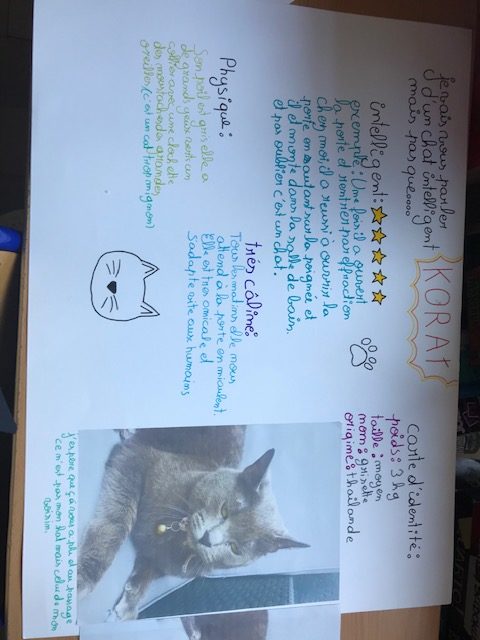 KORAt
je vais vous parler
d'un chat intelligent
mais pas que....
intelligent:
exemple: Une fois il a ouvert
la porte et rentrer par effraction
chez moi il a réussi à ouvrir la
porte en sautant sur la poignée et
il et monté dans la salle de bain.
et pas oublier c'est un chat.
Physique:
Son poil est gris elle a
de grands yeux vert un
collier avec une cloche
des moustaches des grandes
oreilles (c'est un chat trop mignon)
très câline:
Tous les matins elle nous
attend à la porte en miaulent.
Elle est très amicale et
s'adapte vite aux humains
carte d'identité:
poids: 3 kg
taille: moyen
nom: grisette
origine: thaïlande
j'espère que ça vous a plu et au passage
ce n'est pas mon chat mais celui de mon
voisin.